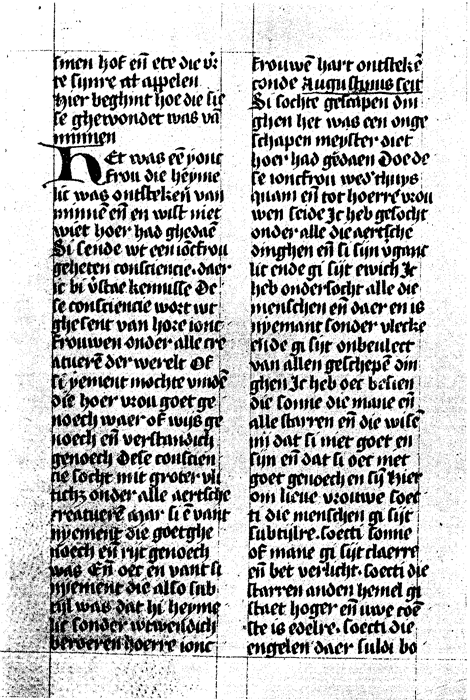 sinen hof en̄ ete die vr̄
te sijnre at appelen
Hier beghint hoe die sie
se ghewondet was va
minnen
HEt was eē ionc
frou die heyme
lic was ontsteken van
minnē en̄ en wist niet
wiet hoer had ghedaē
Si sende wt een iōcfrou
geheten consciencie. daer
ic bi v̄stae kennisse De
se consciencie wort wt
ghesent van hore ionc
frouwen onder alle cre
atuerē der werelt Of
si yement mochte vindē
die hoer vrou goet ge
noech waer of wijs ge
noech en̄ verstandich
genoech Dese conscien
cie socht mit groter vli
ticheit onder alle aertsche
creatuerē Mar si ē vant
nyement die goetghe
noech en̄ rijc genoech
was En̄ oec en vant si
nyement die also sub
tijl was dat hi heyme
lic sonder wtwendich
beroeren hoerre ionc
frouwē hart ontstekē
conde Augustinus seit
Si sochte gescapen din
ghen het was een onge
schapen meyster diet
hoer had gedaen Doe de
se ioncfrou wed' thuys
quam en̄ tot hoerre vrou
wen seide Ic heb gesocht
onder alle die aertsche
dinghen en̄ si sijn v̄ganc
lic ende gi sijt ewich Ic
heb ondersocht alle die
menschen en̄ daer en is
nyemant sonder vlecke
ende gi sijt onbeulect
van allen geschepē din
ghen Ic heb oec besien
die sonne die mane en̄
alle starren en̄ die wisē
mi dat si niet goet en
sijn en̄ dat si oec niet
goet genoech en sij Hier
om lieue vrouwe soect
ti die menschen gi sijt
subtijlre. soecti sonne
of mane gi sijt claerre
en̄ bet verlicht. soecti die
starren anden hemel gi
staet hoger en̄ uwe coē
ste is edelre. soecti die
engelen daer suldi bo